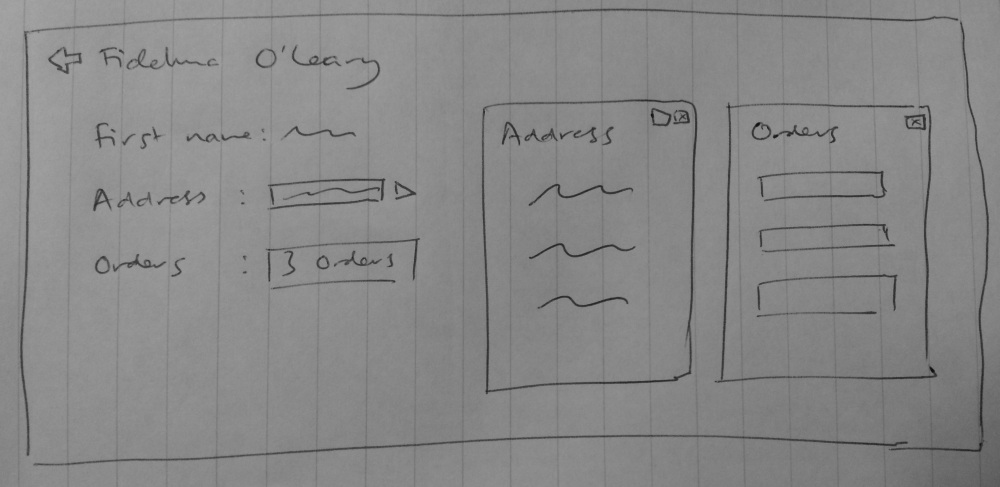 Fidelma O'Leary
First name:
Address :
Orders : 3 Orders
Address
Orders